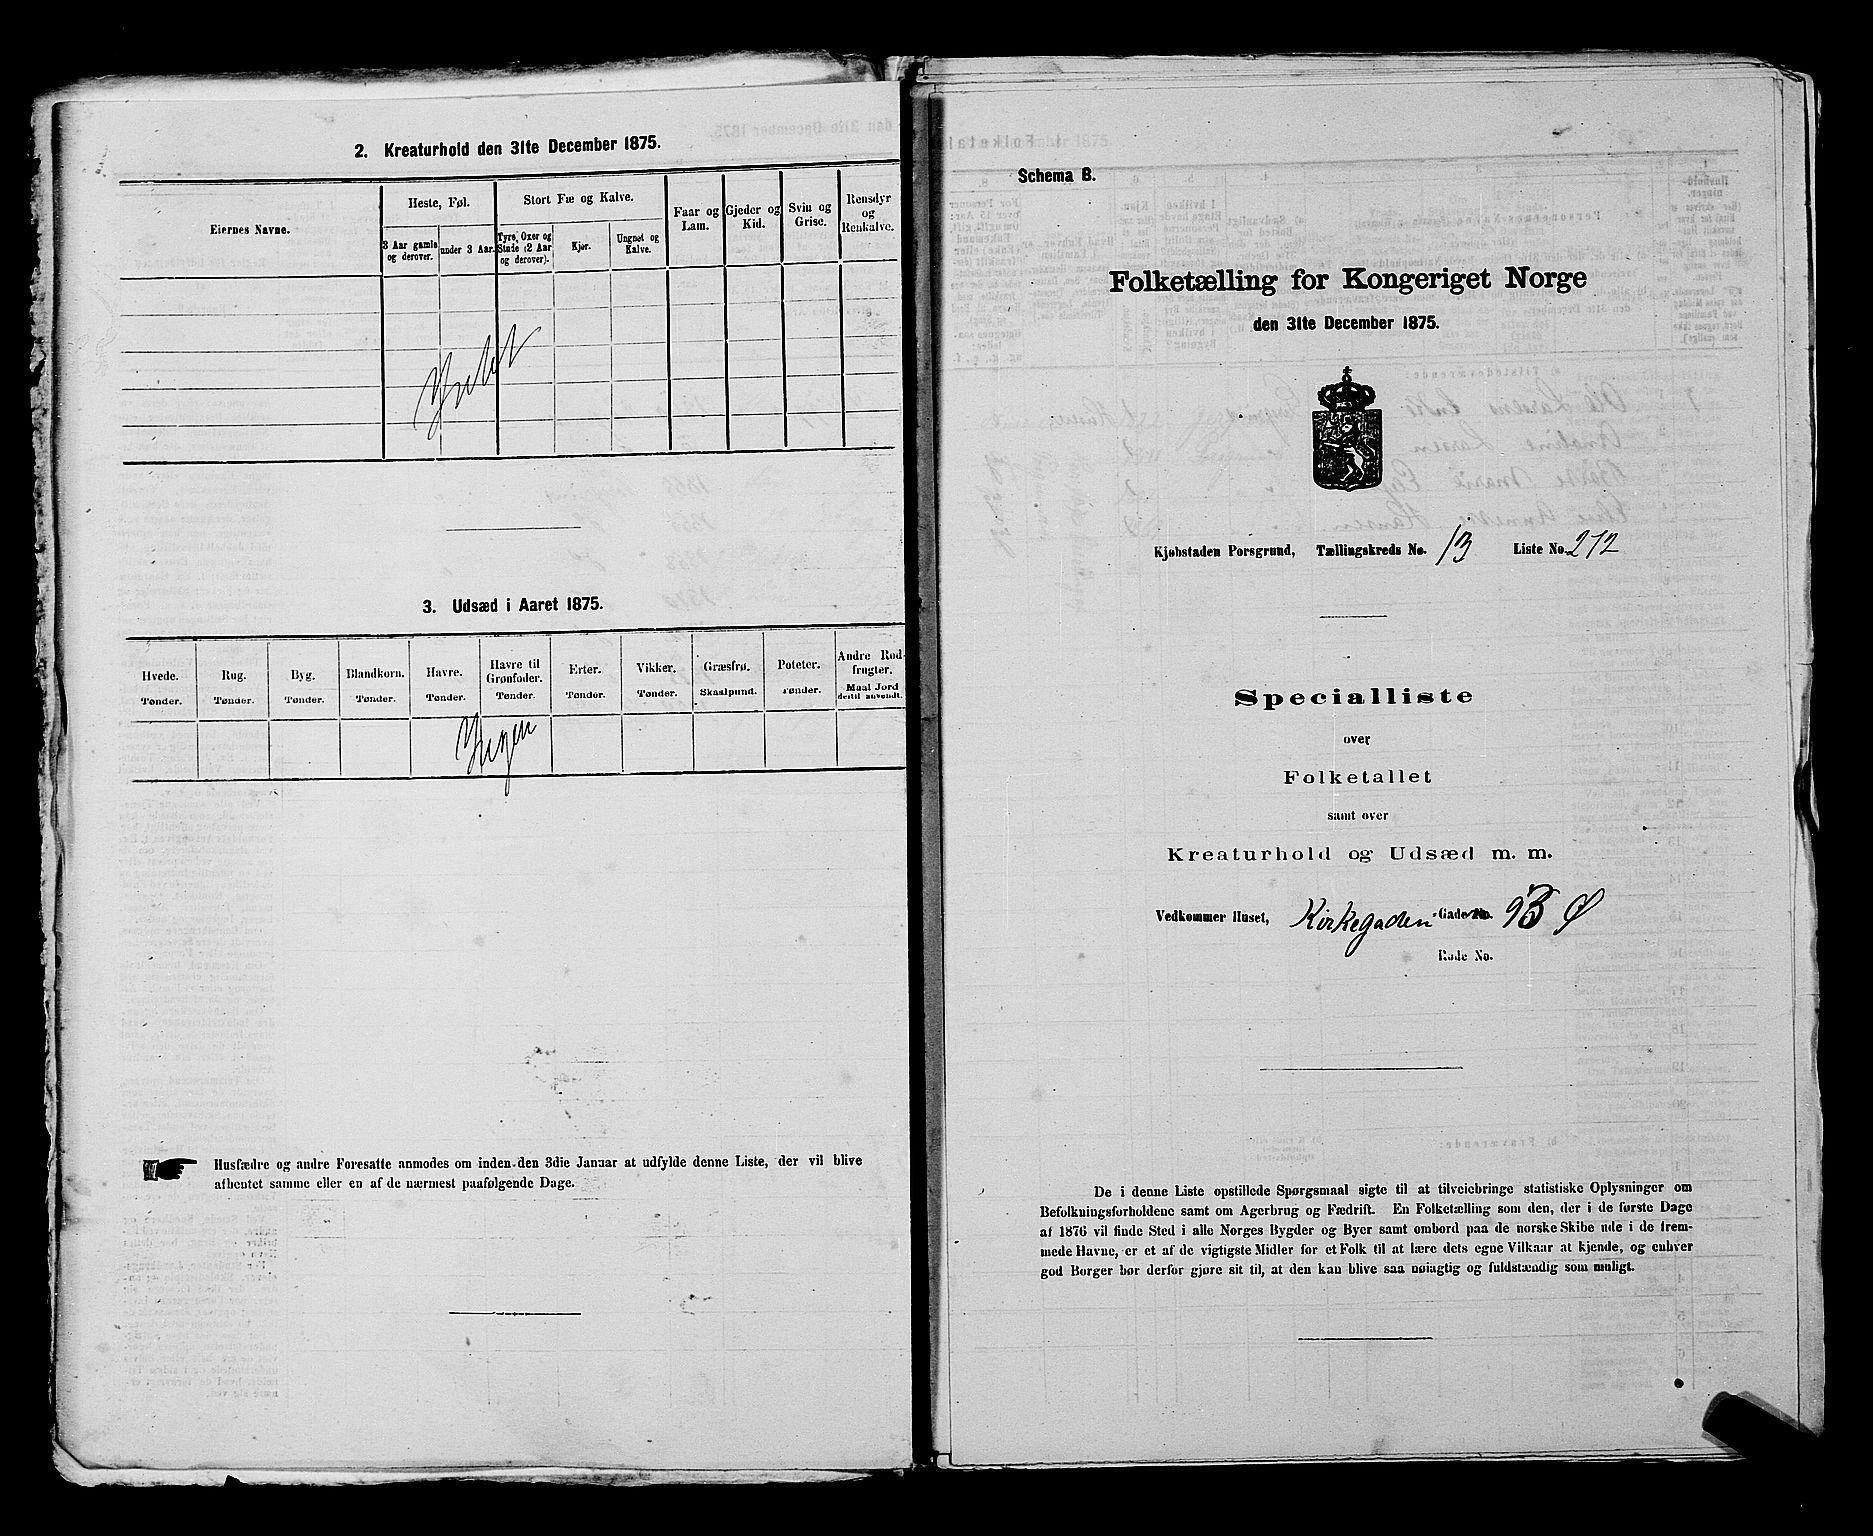 2. Kreaturhold den 31te December 1875.
Eiernes Navne.
Heste, Føl.
3 Aar gamle og derover.
under 3 Aar.
Stort Fæ og Kalve.
Tyre, Oxer og Stude (2 Aar og derover).
Kjør.
Ungnøt og Kalve.
Faar og Lam.
Gjeder og Kid.
Sviu og Grise.
Rensdyr og Renkalve.
Intet
3. Udsæd i Aaret 1875.
Hvede. Tønder.
Rug. Tønder.
Byg. Tønder.
Blandkorn. Tønder.
Havre. Tønder.
Havre til Grønfoder. Tønder.
Erter. Tønder.
Vikker. Tønder.
Græsfrø. Skaalpund.
Poteter. Tønder.
Andre Rodfrugter. Maal Jord dertil anvendt.
Ingen
Husfædre og andre Foresatte anmodes om inden den 3die Januar at udfylde denne Liste, der vil blive
afhentet samme eller en af de nærmest paafølgende Dage.
Schema B.
Folketælling for Kongeriget Norge
den 31te December 1875.
Kjøbstaden Porsgrund, Tællingskreds No. 13 Liste No. 272
Specialliste
over
Folketallet
samt over
Kreaturhold og Udsæd m. m.
Vedkommer Huset, Kirkegaden Gade No. 93 Ø
Rode No.
De i denne Liste opstillede Spørgsmaal sigte til at tilveiebringe statistiske Oplysninger om
Befolkningsforholdene samt om Agerbrug og Fædrift. En Folketælling som den, der i de første Dage
af 1876 vil finde Sted i alle Norges Bygder og Byer samt ombord paa de norske Skibe ude i de frem-
mede Havne, er et af de vigtigste Midler for et Folk til at lære dets egne Vilkaar at kjende, og enhver
god Borger bør derfor gjøre sit til, at den kan blive saa nøiagtig og fuldstændig som muligt.